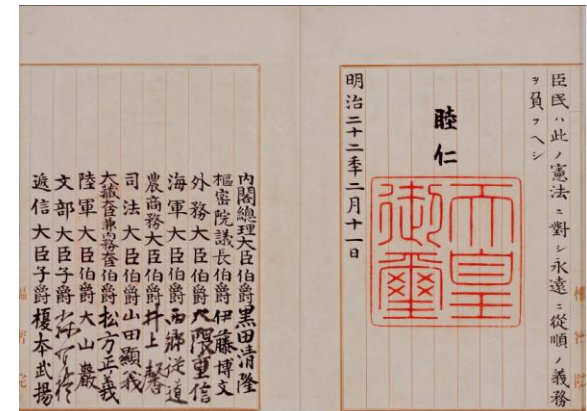 臣民ハ此ノ憲法ニ對シ永遠ニ從順ノ義務
ヲ負フヘシ
睦仁
天皇
御璽
明治二十二年二月十一日
内閣總理大臣伯爵黒田清隆
樞密院議長伯爵伊藤博文
外務大臣伯爵大隈重信
海軍大臣伯爵西郷從道
農商務大臣伯爵井上馨
司法大臣伯爵山田顯義
大藏大臣兼内務大臣伯爵松方正義
陸軍大臣伯爵大山巖
文部大臣子爵
遞信大臣子爵榎本武揚